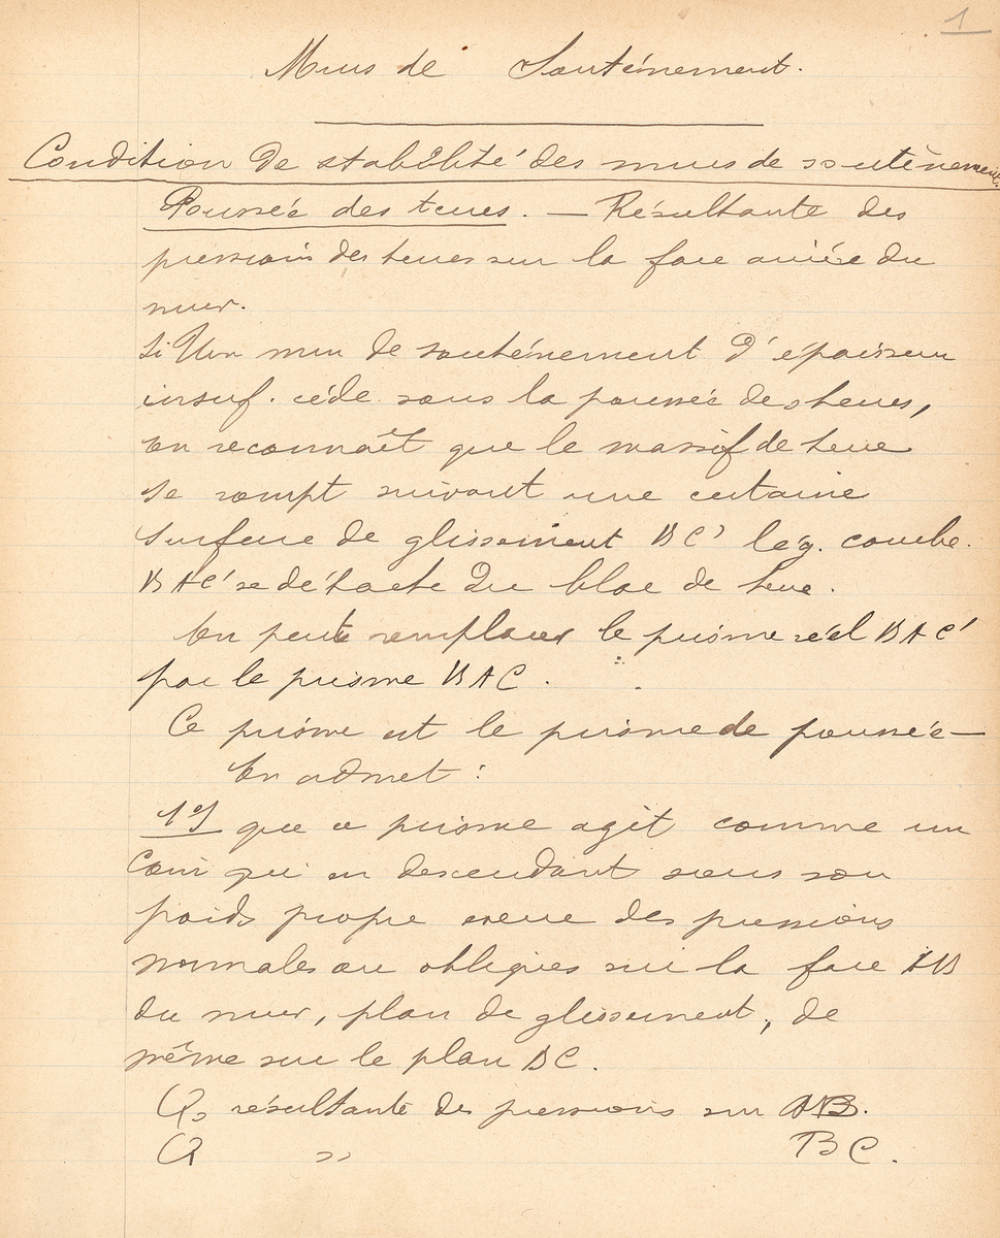 1
Murs de Soutènement.
Condition de stabilité des murs de soutènement.
Poussée des terres. — Résultante des
pressions des terres sur la face arrière du
mur.
Si Un mur de soutènement d'épaisseur
insuf. cède sous la poussée des terres,
on reconnaît que le massif de terre
se rompt suivant une certaine
surface de glissement BC' lég. courbe.
BAC' se détache du bloc de terre.
On peut remplacer le prisme réel BAC'
par le prisme BAC.
Ce prisme est le prisme de poussée —
On admet :
1°/ que ce prisme agit comme un
coin qui en descendant sous son
poids propre exerce des pressions
normales ou obliques sur la face AB
du mur, plan de glissement, de
même sur le plan BC.
Q₀ résultante des pressions sur AB.
Q " BC.